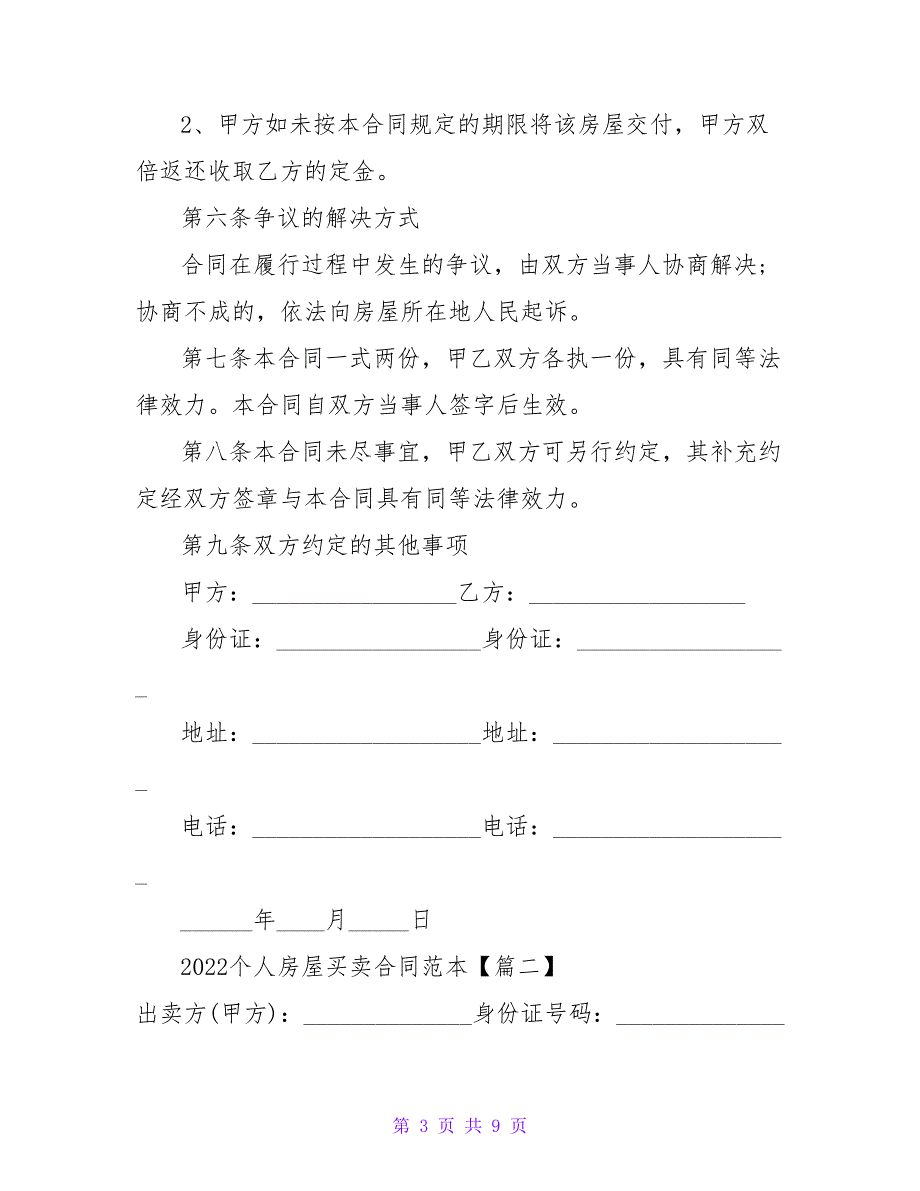 2、甲方如未按本合同规定的期限将该房屋交付，甲方双
倍返还收取乙方的定金。
第六条争议的解决方式
合同在履行过程中发生的争议，由双方当事人协商解决;
协商不成的，依法向房屋所在地人民起诉。
第七条本合同一式两份，甲乙双方各执一份，具有同等法
律效力。本合同自双方当事人签字后生效。
第八条本合同未尽事宜，甲乙双方可另行约定，其补充约
定经双方签章与本合同具有同等法律效力。
第九条双方约定的其他事项
甲方：_________________乙方：__________________
身份证：_________________身份证：_________________
_
地址：___________________地址：___________________
_
电话：___________________电话：___________________
_
______年____月_____日
2022个人房屋买卖合同范本【篇二】
出卖方(甲方)：______________身份证号码：______________
第 3 页 共 9 页